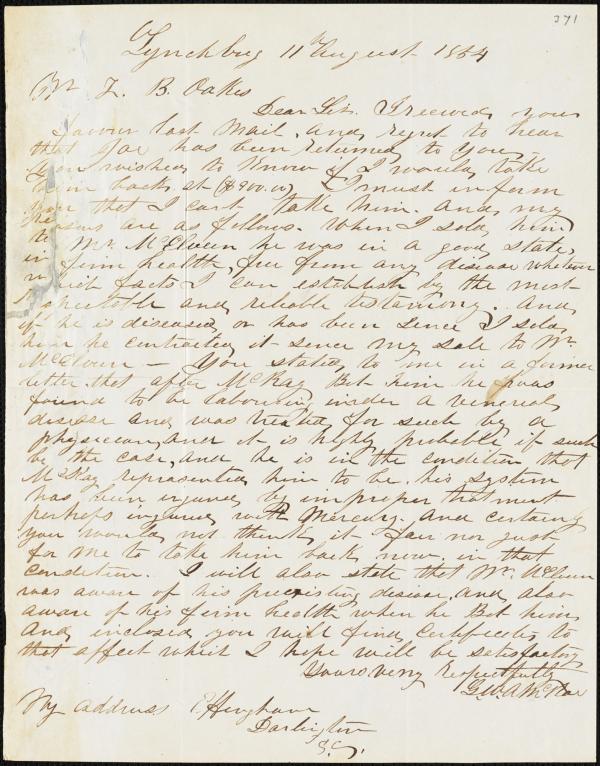 371
Lynchburg 11th August 1854
Mr Z. B. Oakes
Dear Sir. I received your
favour last mail, and regret to hear
that Joe has been returned to you,
you wished to know if I would take
him back at ($900.00) I must inform
you that I cant take him. and my
reasons are as follows. When I sold him
to Mr. McElveen he was in a good state,
in firm health, free from any disease whatever
which facts I can establish by the most
respectable and reliable testamony. And
if he is diseased, or has been since I sold
him he contracted it since my sale to Mr.
McElveen — You stated to me in a former
letter that after McKay Bot him he was
found to be labouring under a venereal
disease and was treated for such by a
physician, and it is highly probable if such
be the case, and he is in the condition that
McKay represented him to be, his system
has been injured by improper treatment
perhaps injured with Mercury. And certainly
you would not think it fair nor just
for me to take him back now in that
condition. I will also state that Mr. McElveen
was aware of his preexisting disease, and also
aware of his firm health when he Bot him
And inclosed you will find certificates to
that affect which I hope will be satisfactory
Yours very Respectfully
G.W.A.
My address Effingham
Darlington
S.C.